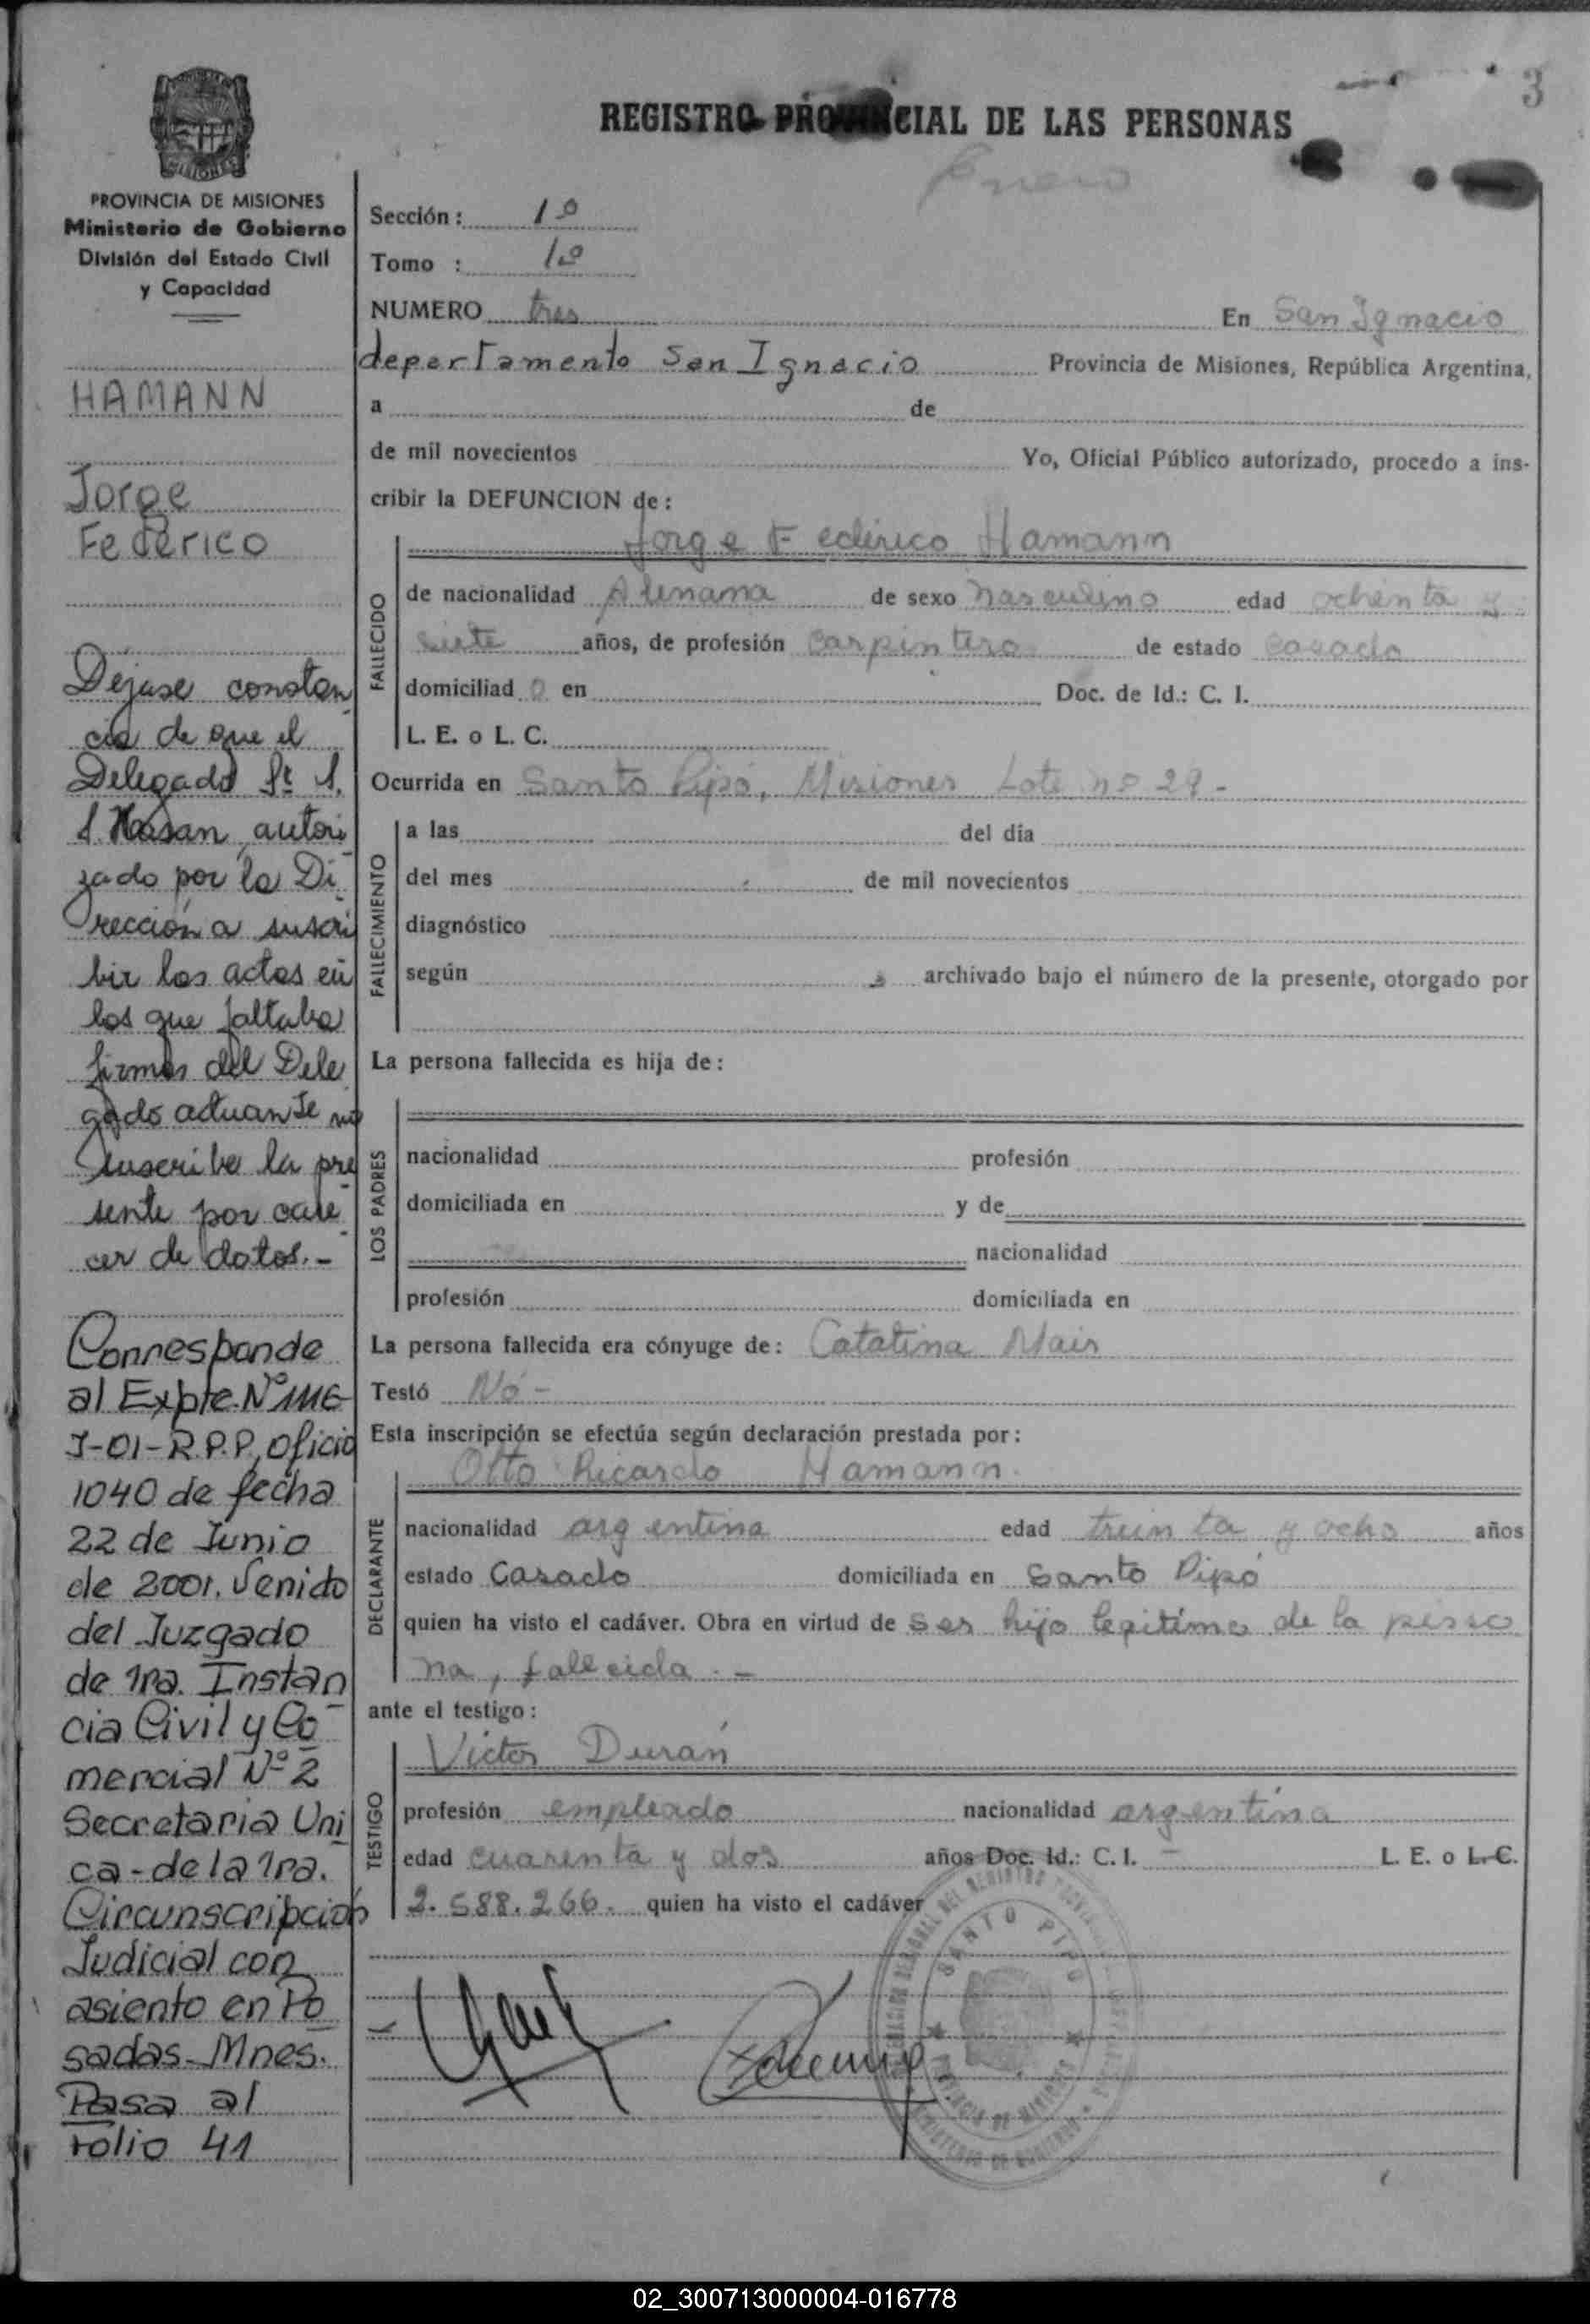 3
REGISTRO PROVINCIAL DE LAS PERSONAS
Enero
PROVINCIA DE MISIONES
Ministerio de Gobierno
División del Estado Civil
y Capacidad
HAMANN
Jorge
Federico
Déjase constan
cia de que el
Delegado Sr. S.
S. Hasan, autori
zado por la Di
rección a suscri
bir los actos en
los que faltaba
firmas del Dele
gado actuante no
suscribe la pre
sente por care
cer de datos.-
Corresponde
al Expte. Nº 1116
J-01-R.P.P, oficio
1040 de fecha
22 de Junio
de 2001. Venido
del Juzgado
de 1ra. Instan
cia Civil y Co
mercial Nº 2
Secretaria Uni
ca-de la 1ra.
Circunscripción
Judicial con
asiento en Po
sadas-Mnes.
Pasa al
folio 41
Sección: 1º
Tomo : 1º
NUMERO tres En San Ignacio
departamento San Ignacio Provincia de Misiones, República Argentina,
a de
de mil novecientos Yo, Oficial Público autorizado, procedo a ins-
cribir la DEFUNCION de:
FALLECIDO
Jorge Federico Hamann
de nacionalidad Alemana de sexo masculino edad ochenta y
siete años, de profesión carpintero de estado casado
domiciliad o en Doc. de Id.: C. I.
L. E. o L. C.
Ocurrida en Santo Pipó, Misiones Lote nº 29-
FALLECIMIENTO
a las del día
del mes de mil novecientos
diagnóstico
según archivado bajo el número de la presente, otorgado por
La persona fallecida es hija de:
LOS PADRES
nacionalidad profesión
domiciliada en y de
nacionalidad
profesión domiciliada en
La persona fallecida era cónyuge de: Catalina Mair
Testó No-
Esta inscripción se efectúa según declaración prestada por:
DECLARANTE
Otto Ricardo Hamann.
nacionalidad argentina edad treinta y ocho años
estado Casado domiciliada en Santo Pipó
quien ha visto el cadáver. Obra en virtud de ser hijo legitimo de la perso
na, fallecida.-
ante el testigo:
TESTIGO
Victor Durán
profesión empleado nacionalidad argentina
edad cuarenta y dos años Doc. Id.: C. I. - L. E. o L. C.
2.588.266. quien ha visto el cadáver
SANTO PIPO
PROVINCIA DE MISIONES
MINISTERIO DE GOBIERNO
02_300713000004-016778